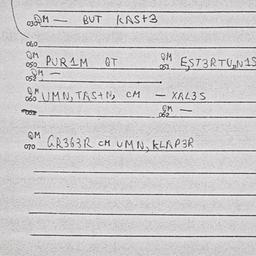 QM
030 — BUT KAST3
040
QM QM
050 PUR1M OT 051 E,ST3RTU,N1S
QM —
052
QM
060 UMN,TAST1N, CM — XAL3S
QM —
062
QM
070 GR363R CM UMN,KLAP3R